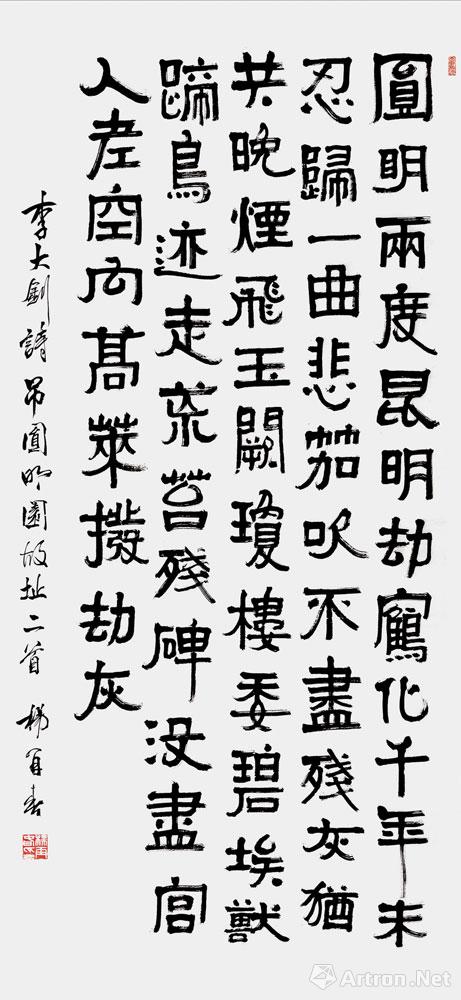 圓明兩度昆明劫鶴化千年未
忍歸一曲悲笳吹不盡殘灰猶
共晚煙飛玉闕瓊樓委碧埃獸
蹄鳥迹走荒苔殘碑没盡宮
人老空向蒿萊撥劫灰
李大釗詩吊圓明園故址二首 楊再春
Artron.Net